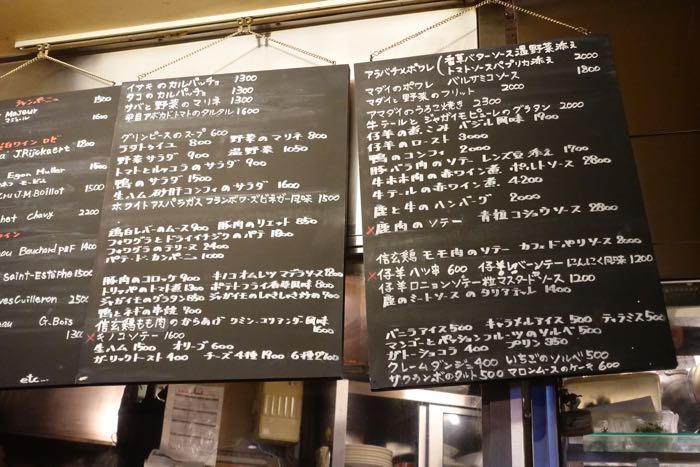 シャンパーニュ
Majeur 1500
1600
白ワイン ロゼ
JRijckaert 1800
Egon Müller
1500
J.M Boillot
Chavy 2200
イン
Bouchard P&F 1400
Saint-Estèphe 1500
Yves Cuilleron 2500
G.Bois
1300
etc...
イサキのカルパッチョ 1300
タコのカルパッチョ 1300
サバと野菜のマリネ 1300
平目アボカドトマトのタルタル 1600
グリンピースのスープ 600
ラタトゥイユ 800 野菜のマリネ 800
野菜サラダ 900 温野菜 1050
トマトとルッコラのサラダ 900
鴨のサラダ 1500
生ハム 砂肝コンフィのサラダ 1600
ホワイトアスパラガス フランボワーズビネガー風味 1500
鶏白レバーのムース 900 豚肉のリエット 850
フォワグラとドライイチジクのパテ 1800
フォワグラのテリーヌ 2400
パテ・ド・カンパーニュ 1000
豚肉のコロッケ 900 キノコオムレツ マデラソース 1200
トリッパのトマト煮 1300 ポテトフライ香草風味 800
ジャガイモのグラタン 850
鴨とネギの串焼 900
信玄鶏もも肉のからあげ クミン、コリアンダー風味 1600
×キノコソテー 1600
生ハム 1500 オリーブ 600
ガーリックトースト 400 チーズ 4種 1900 6種 2700
アラバチメポワレ (香草バターソース温野菜添え 2000
トマトソースパプリカ添え 2000
マダイのポワレ バルサミコソース 1800
マダイと野菜のフリット 2000
アマダイのうろこ焼き 2300
牛テールとジャガイモピューレのグラタン 2000
仔羊の煮こみ バジル風味 1900
仔羊のロースト 3000
鴨のコンフィ 2000
豚バラ肉のソテー レンズ豆添え 1700
牛ホホ肉の赤ワイン煮 ポルトソース 2800
牛テールの赤ワイン煮 4200
鹿と牛のハンバーグ 2000
×鹿肉のソテー 青粒コショウソース 2800
信玄鶏 モモ肉のソテー カフェ・ド・パリソース 2000
×仔羊ハツ串 600 仔羊レバーソテーにんにく風味 1200
仔羊ロニョンソテー 粒マスタードソース 1200
鹿のミートソースのタリアテッレ 1400
バニラアイス 500 キャラメルアイス 500 ティラミス 500
マンゴーとパッションフルーツのソルベ 500
ガトーショコラ 400 プリン 350
クレームダンジュ 400 いちごのソルベ 500
サクランボのタルト 500 マロンムースのケーキ 600